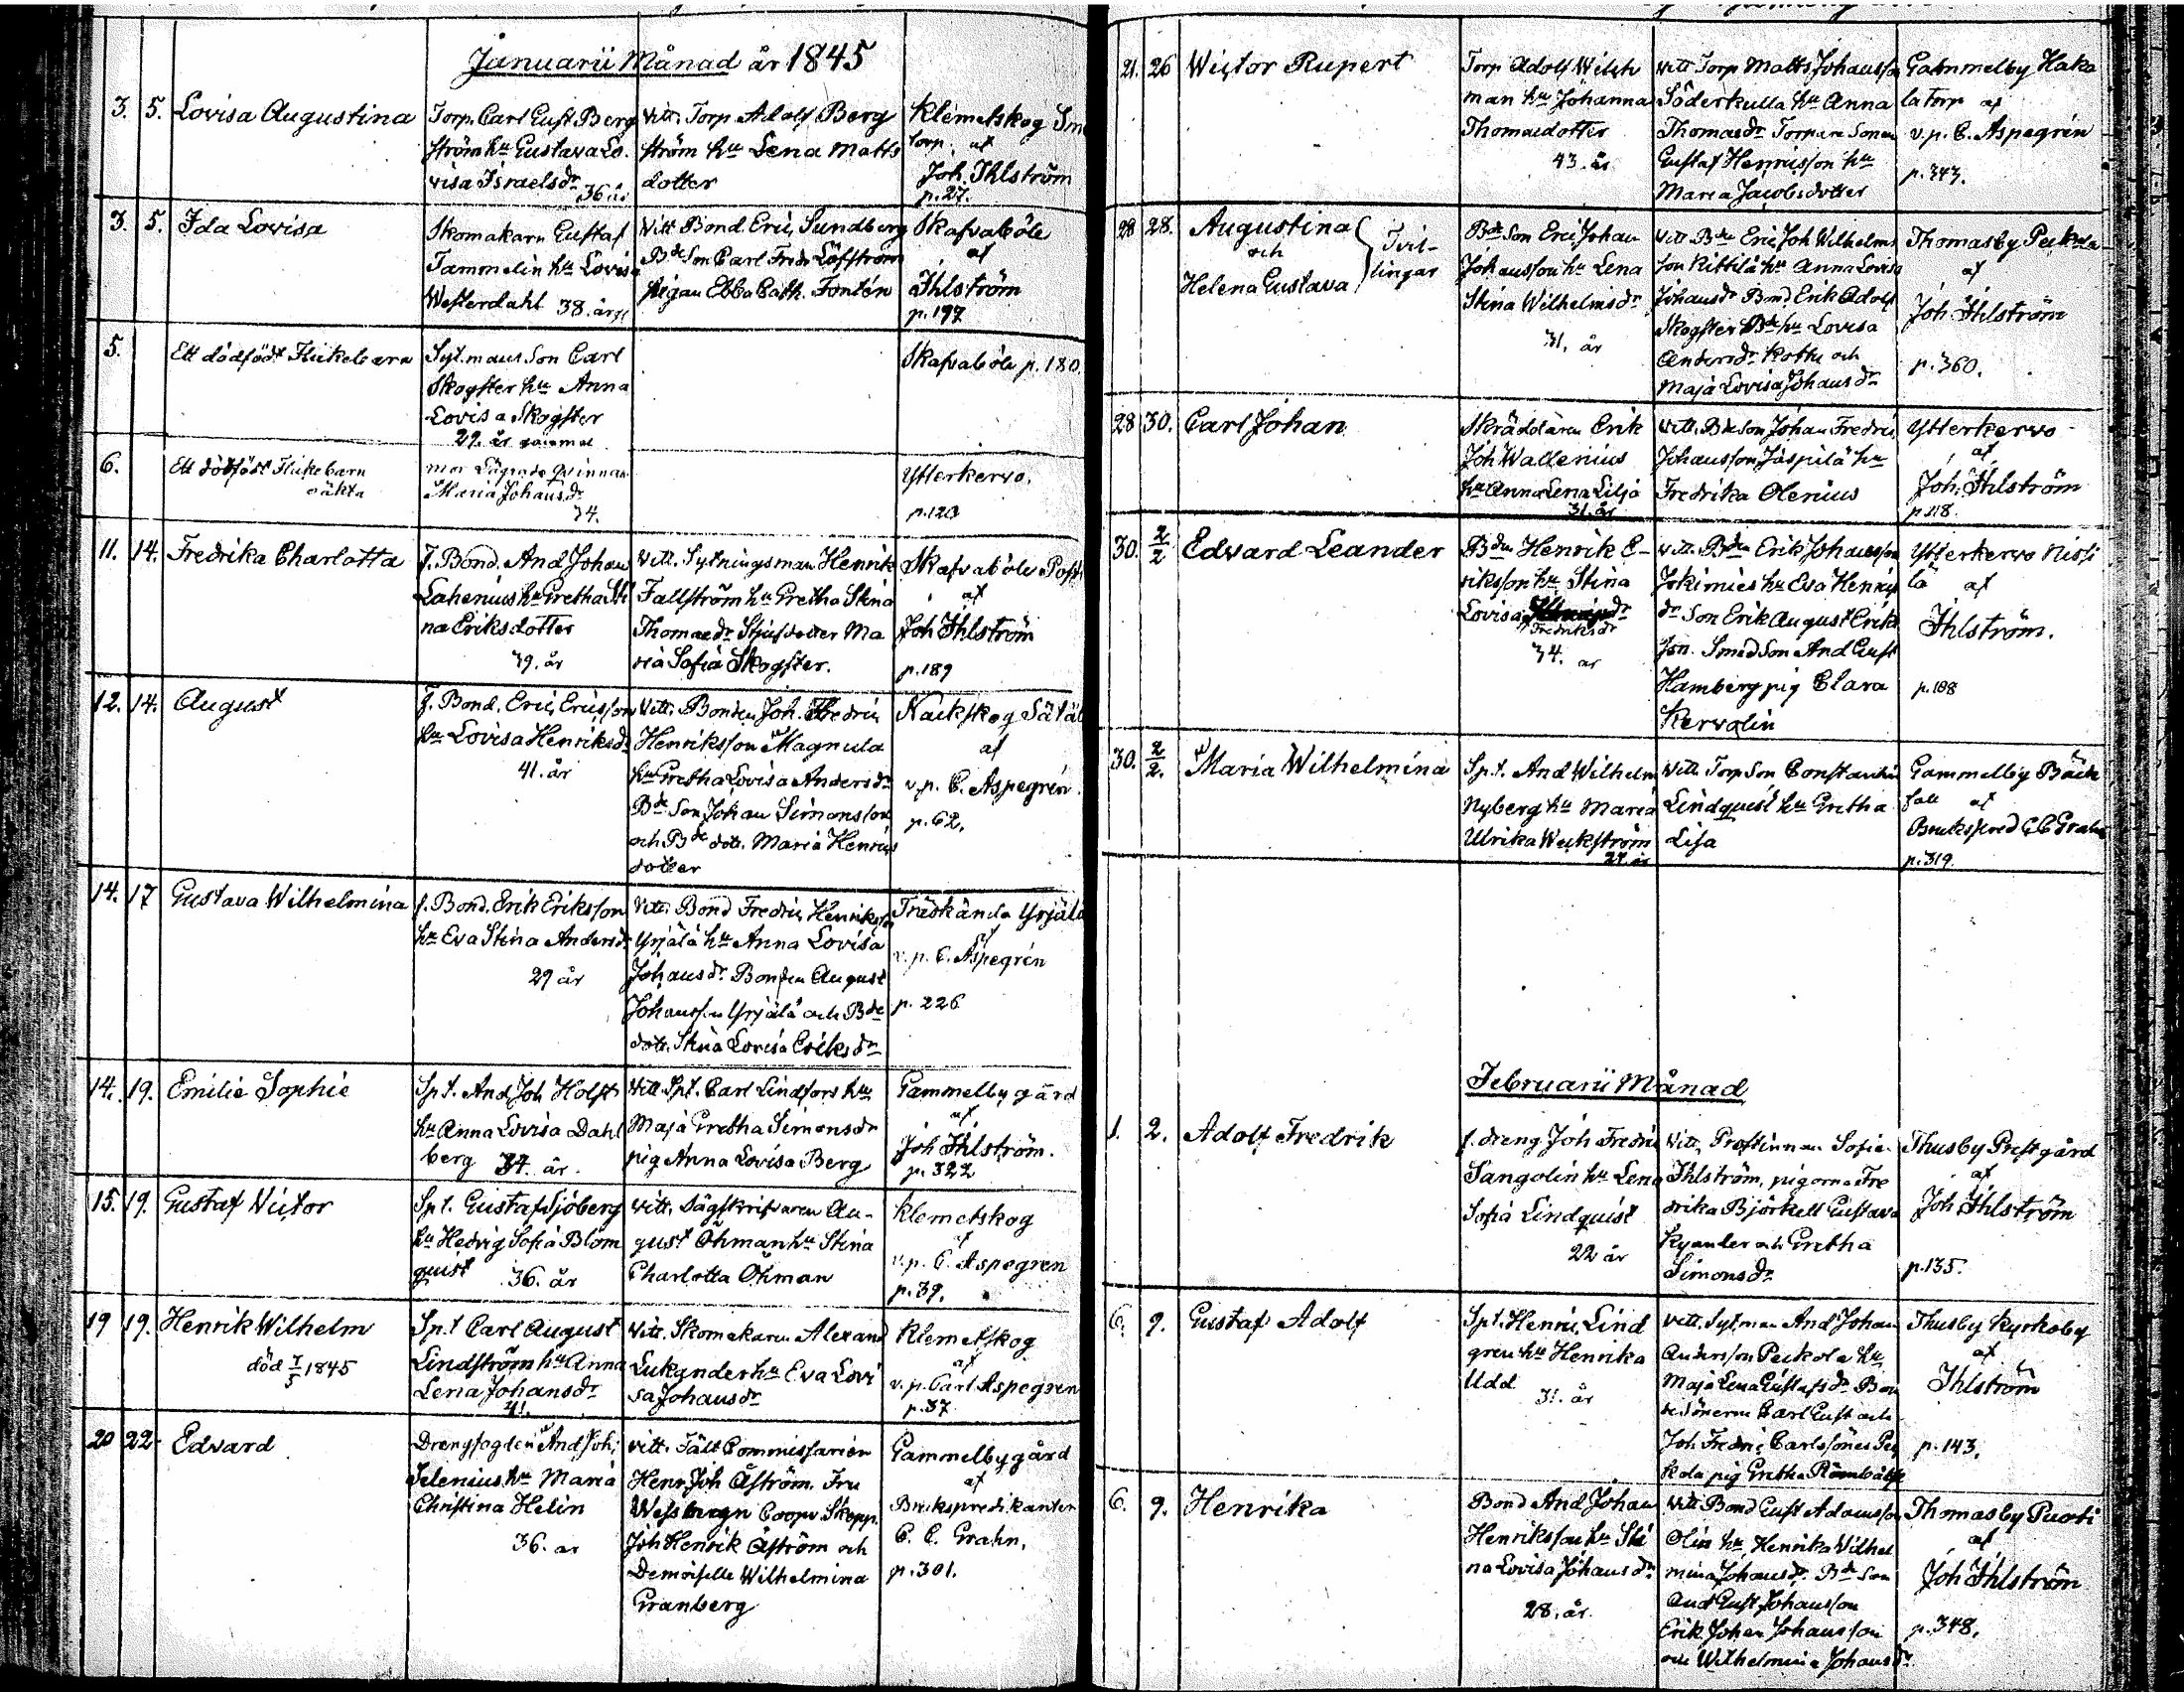 Januarii Månad år 1845
3. 5. Lovisa Augustina
Torp. Carl Gust Berg
ström hu Gustava Lo-
visa Israelsdr 36 år
vitt. Torp Adolf Berg
ström hu Lena Matts
dotter
Klemetskog
torp. af
Joh. Ihlström
p. 27.
3. 5. Ida Lovisa
Skomakarn Gustaf
Tammelin hu Lovisa
Westerdahl 38. år
Vitt Bond. Eric Sundberg
Bde Son Carl Fredr Löfström
pigan Ebba Cath. Fontén
Skafvaböle
af
Ihlström
p. 197
5. Ett dödfödt Flickebarn
Syt.mans Son Carl
Skogster hu Anna
Lovisa Skogster
29. år gammal
Skafvaböle p. 180.
6. Ett dödfödt Flickebarn
oäkta
mor Lägrade Qvinnan
Maria Johansdr
34.
Ytterkervo.
p. 123
11. 14. Fredrika Charlotta
f. Bond. And Johan
Lahenius hu Gretha Sti
na Eriksdotter
39. år
Vitt. Sytningsman Henrik
Fallström hu Gretha Stina
Thomasdr Stjufdotter Ma
ria Sofia Skogster.
Skafvaböle Post
af
Joh Ihlström
p. 189
12. 14. August
f. Bond. Eric Ericsson
hu Lovisa Henriksdr
41. år
Vitt. Bonden Joh. Fredric
Henriksson Magnula
hu Gretha Lovisa Andersdr
Bde Son Johan Simonsson
och Bde dotr. Maria Henrics
dotter
Nackskog Sätäl
af
v. p. C. Aspegrén
p. 62.
14. 17 Gustava Wilhelmina
f. Bond. Erik Eriksson
hu Eva Stina Andersdr
29 år
Vitt. Bond Fredric Henriksson
Yrjälä hu Anna Lovisa
Johansdr Bonden August
Johansson Yrjälä och Bde
dotr. Stina Lovisa Eriksdr
Träskända Yrjälä
af
v. p. C. Aspegrén
p. 226
14. 19. Emilie Sophie
Spt. And Joh Holst
hu Anna Lovisa Dahl
berg 34. år.
Vitt. Spt. Carl Lindfors hu
Maja Gretha Simonsdr
pig Anna Lovisa Berg
Gammelby gård
af
Joh Ihlström.
p. 322
15. 19. Gustaf Victor
Spt. Gustaf Sjöberg
hu Hedvig Sofia Blom
quist 36. år
vitt. Sågskrifvaren Au-
gust Öhman hu Stina
Charlotta Öhman
Klemetskog
af
v. p. C. Aspegren
p. 39.
19 19. Henrik Wilhelm
död 7/5 1845
Sp.t Carl August
Lindström hu Anna
Lena Johansdr
41.
vitt. Skomakaren Alexand
Lukander hu Eva Lovi
sa Johansdr
Klemetskog
af
v. p. Carl Aspegren
p. 37
20 22 Edvard
Drengfogden And Joh.
Selenius hu Maria
Christina Helin
36. år
vitt. Fält Commissarien
Henr Joh Åström, Fru
Coopv. Skepp.
Joh Henrik Åström och
Demoiselle Wilhelmina
Granberg
Gammelby gård
af
Brukspredikanten
C. E. Grahn.
p. 301.
21. 26 Wictor Rupert
Torp Adolf Wilck
man hu Johanna
Thomasdotter
43. år
vitt Torp Matts Johansson
Söderkulla hu Anna
Thomasdr Torpare Sonen
Gustaf Henricsson hu
Maria Jacobsdotter
Gammelby Haka
la torp af
v. p. C. Aspegrén
p. 343.
28 28. Augustina
och
Helena Gustava
Tvil-
lingar
Bde Son Eric Johan
Johansson hu Lena
Stina Wilhelmsdr
31. år
Vitt Bde Eric Joh Wilhelms
son Kittilä hu Anna Lovisa
Johansdr Bond Erik Adolf
Skogster Bde hu Lovisa
Andersdr Kotke och
Maja Lovisa Johansdr
Thomasby Peckola
af
Joh Ihlström
p. 360.
28 30. Carl Johan
Skräddaren Erik
Joh Wallenius
hu Anna Lena Lilja
31. år
Vitt. Bde Son Johan Fredric
Johansson Jäspilä hu
Fredrika Olenius
Ytterkervo
af
Joh. Ihlström
p 118.
30. 2/2 Edvard Leander
Bden Henrik E-
riksson hu Stina
Lovisa
Fredriksdr
34. år
vitt. Bden Erik Johansson
Jokimies hu Eva Henrics
dr Son Erik August Eriks
son. Smed Son And Gust
Hamberg pig Clara
Kervolin
Ytterkervo Nissi
lä af
Ihlström.
p. 108
30. 2/2. Maria Wilhelmina
Sp.t. And Wilhelm
Nyberg hu Maria
Ulrika Weckström
27. år
Vitt Torp Son Constantin
Lindquist hu Gretha
Lisa
Gammelby Bäck
fall af
Brukspred C E Grahn
p. 319.
Februarii Månad
1. 2. Adolf Fredrik
f. dreng Joh Fredric
Sangolin hu Lena
Sofia Lindquist
22 år
Vitt. Prostinnan Sofie
Ihlström, pigorna Fre
drika Björkell Gustava
Kyander och Gretha
Simonsdr
Thusby Prestgård
af
Joh Ihlström
p. 135.
6. 9. Gustaf Adolf
Spt. Henric Lind
gren hu Henrika
Udd
31. år
vitt. Syt.man And Johan
Andersson Peckola hu
Maja Lena Gustafsdr Bon
desönerne Carl Gust och
Joh Fredric Carlssöner Pec
kola pig Gretha
Thusby Kyrkoby
af
Ihlström
p. 143.
6. 9. Henrika
Bond And Johan
Henriksson hu Sti
na Lovisa Johansdr
28. år.
vitt. Bond Gust Adamsson
Olin hu Henrika Wilhel
mina Johansdr. Bde Son
And Gust Johansson
Erik Johan Johansson
och Wilhelmina Johansdr
Thomasby Puosti
af
Joh Ihlström
p. 348.